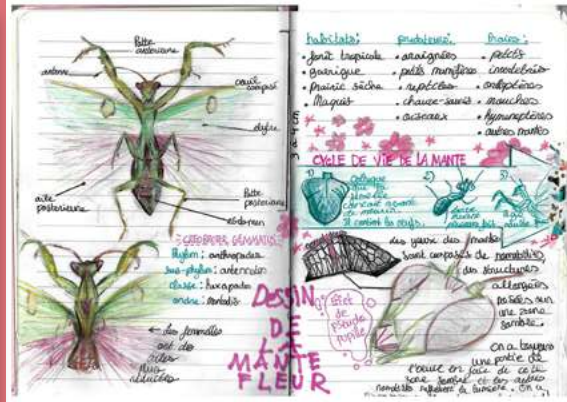 Patte
antérieure
antenne
oeuil
composé
élytre
aile
postérieure
Patte
postérieure
abdomen
CREOBROTER GEMMATUS
Phylum: arthropodes
sous-phylum: antennates
classe: hexapodes
ordre: mantodis
← Les femelles
ont des
ailes
plus
réduites
DESSIN
DE
LA
MANTE
FLEUR
3 à 4 cm
habitats:
• forêt tropicale
• garrigue
• Prairie sèche
• Maquis
prédateurs:
• araignées
• petits mamifères
• reptiles
• chauve-souris
• oiseaux
Proies:
• petits
invertébrés
• orthoptères
• mouches
• hyménoptères
• autres mantes
CYCLE DE VIE DE LA MANTE
1)
Oothèque
que la
femelle
de mourir.
2)
3)
âge
adulte
des yeux des mantes
sont composés de
des structures
allongées
posées sur
une zone
sombre.
Effet
de
pseudo
pupille
on a toujours
une partie de
l'oeuil en face de cette
zone sombre et les autres
la lumière. On a